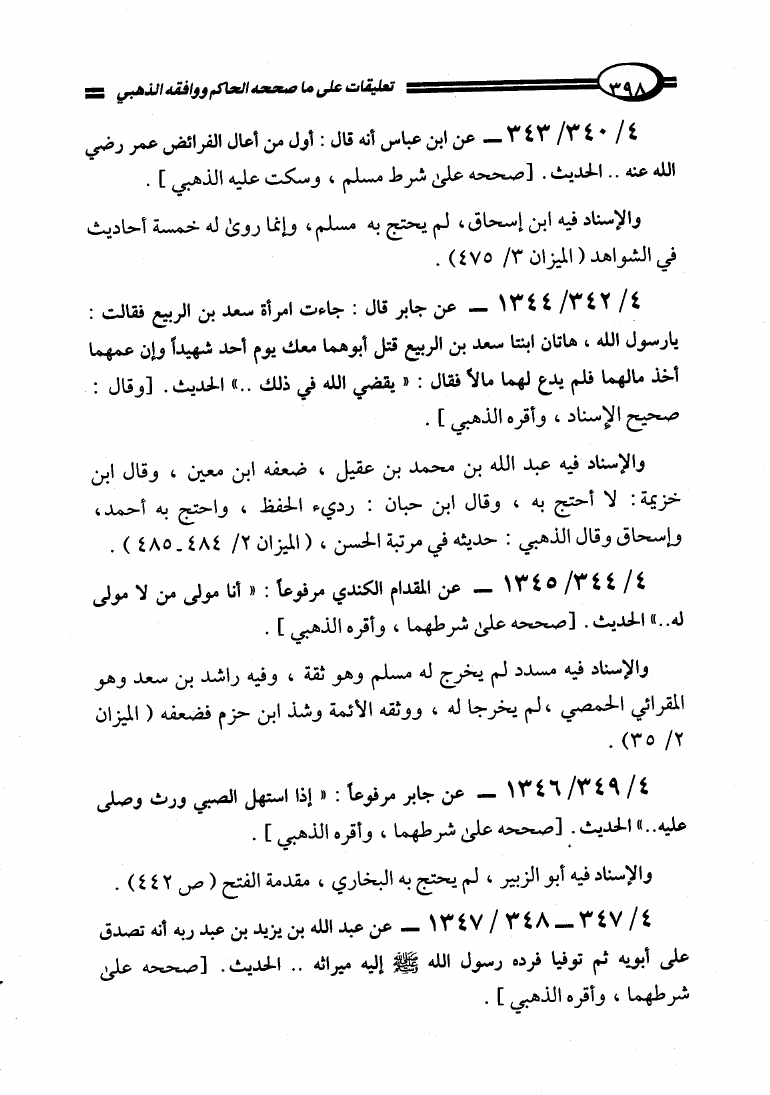 ٣٩٨ تعليقات على ما صححه الحاكم ووافقه الذهبي
٤/ ٣٤٠/ ٣٤٣ ــ عن ابن عباس أنه قال : أول من أعال الفرائض عمر رضي
الله عنه .. الحديث . [صححه علىٰ شرط مسلم ، وسكت عليه الذهبي ] .
والإسناد فيه ابن إسحاق، لم يحتج به مسلم، وإنما روىٰ له خمسة أحاديث
في الشواهد ( الميزان ٣/ ٤٧٥) .
٤/ ٣٤٢/ ١٣٤٤ ــ عن جابر قال : جاءت امرأة سعد بن الربيع فقالت :
يارسول الله ، هاتان ابنتا سعد بن الربيع قتل أبوهما معك يوم أحد شهيداً وإن عمهما
أخذ مالهما فلم يدع لهما مالاً فقال : « يقضي الله في ذلك ..» الحديث . [وقال :
صحيح الإسناد ، وأقره الذهبي ] .
والإسناد فيه عبد الله بن محمد بن عقيل ، ضعفه ابن معين ، وقال ابن
خزيمة : لا أحتج به ، وقال ابن حبان : رديء الحفظ ، واحتج به أحمد،
وإسحاق وقال الذهبي : حديثه في مرتبة الحسن ، ( الميزان ٢/ ٤٨٤ـ٤٨٥ ) .
٤/ ٣٤٤/ ١٣٤٥ ــ عن المقدام الكندي مرفوعاً : « أنا مولى من لا مولى
له..» الحديث . [صححه علىٰ شرطهما ، وأقره الذهبي ] .
والإسناد فيه مسدد لم يخرج له مسلم وهو ثقة ، وفيه راشد بن سعد وهو
المقرائي الحمصي ،لم يخرجا له ، ووثقه الأئمة وشذ ابن حزم فضعفه ( الميزان
٢/ ٣٥) .
٤/ ٣٤٩/ ١٣٤٦ ــ عن جابر مرفوعاً : « إذا استهل الصبي ورث وصلى
عليه..» الحديث . [صححه علىٰ شرطهما ، وأقره الذهبي ] .
والإسناد فيه أبو الزبير ، لم يحتج به البخاري ، مقدمة الفتح ( ص ٤٤٢) .
٤/ ٣٤٧ ــ ٣٤٨ / ١٣٤٧ ــ عن عبد الله بن يزيد بن عبد ربه أنه تصدق
على أبويه ثم توفيا فرده رسول الله ﷺ إليه ميراثه .. الحديث . [صححه علىٰ
شرطهما ، وأقره الذهبي ] .